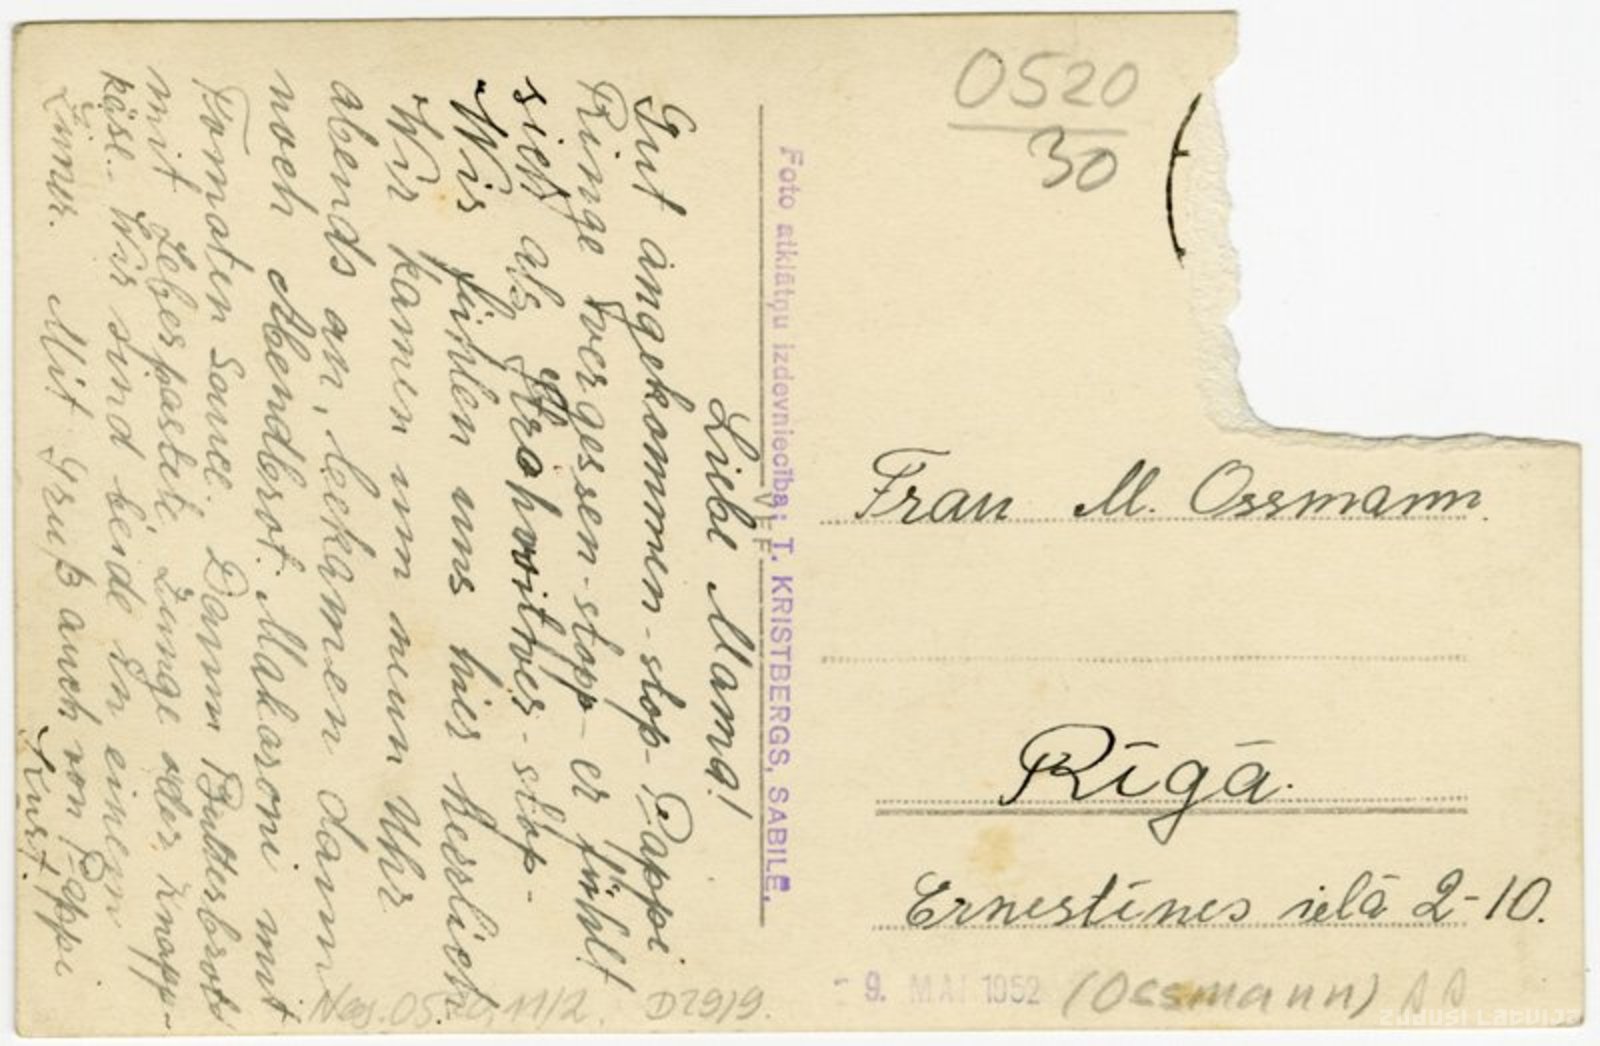 Liebe Mama!
Gut angekommen-stop-Pappi
Ringe vergessen-stopp-er fühlt
sich als Strohwitwer-stop-
Wir fühlen uns hier herrlich
Wir kamen um neun Uhr
abends an, bekamen dann
noch Abendbrot: Makaroni mit
Tomaten Sauce. Dann Butterbrote
mit Leberpastete, Zunge oder Knapp-
käse. Wir sind beide in einem
Zimmer. Mit Gruß auch von Pappi
Kurt.
Foto atklātņu izdevniecība: T. KRISTBERGS, SABILĒ.
VEF
0520
30
Frau M. Ossmann.
Rīgā.
Ernestīnes ielā 2-10.
- 9. MAI 1952 (Ossmann)
Neg. 0520, 11/2. D2919.
zudusi Latvija